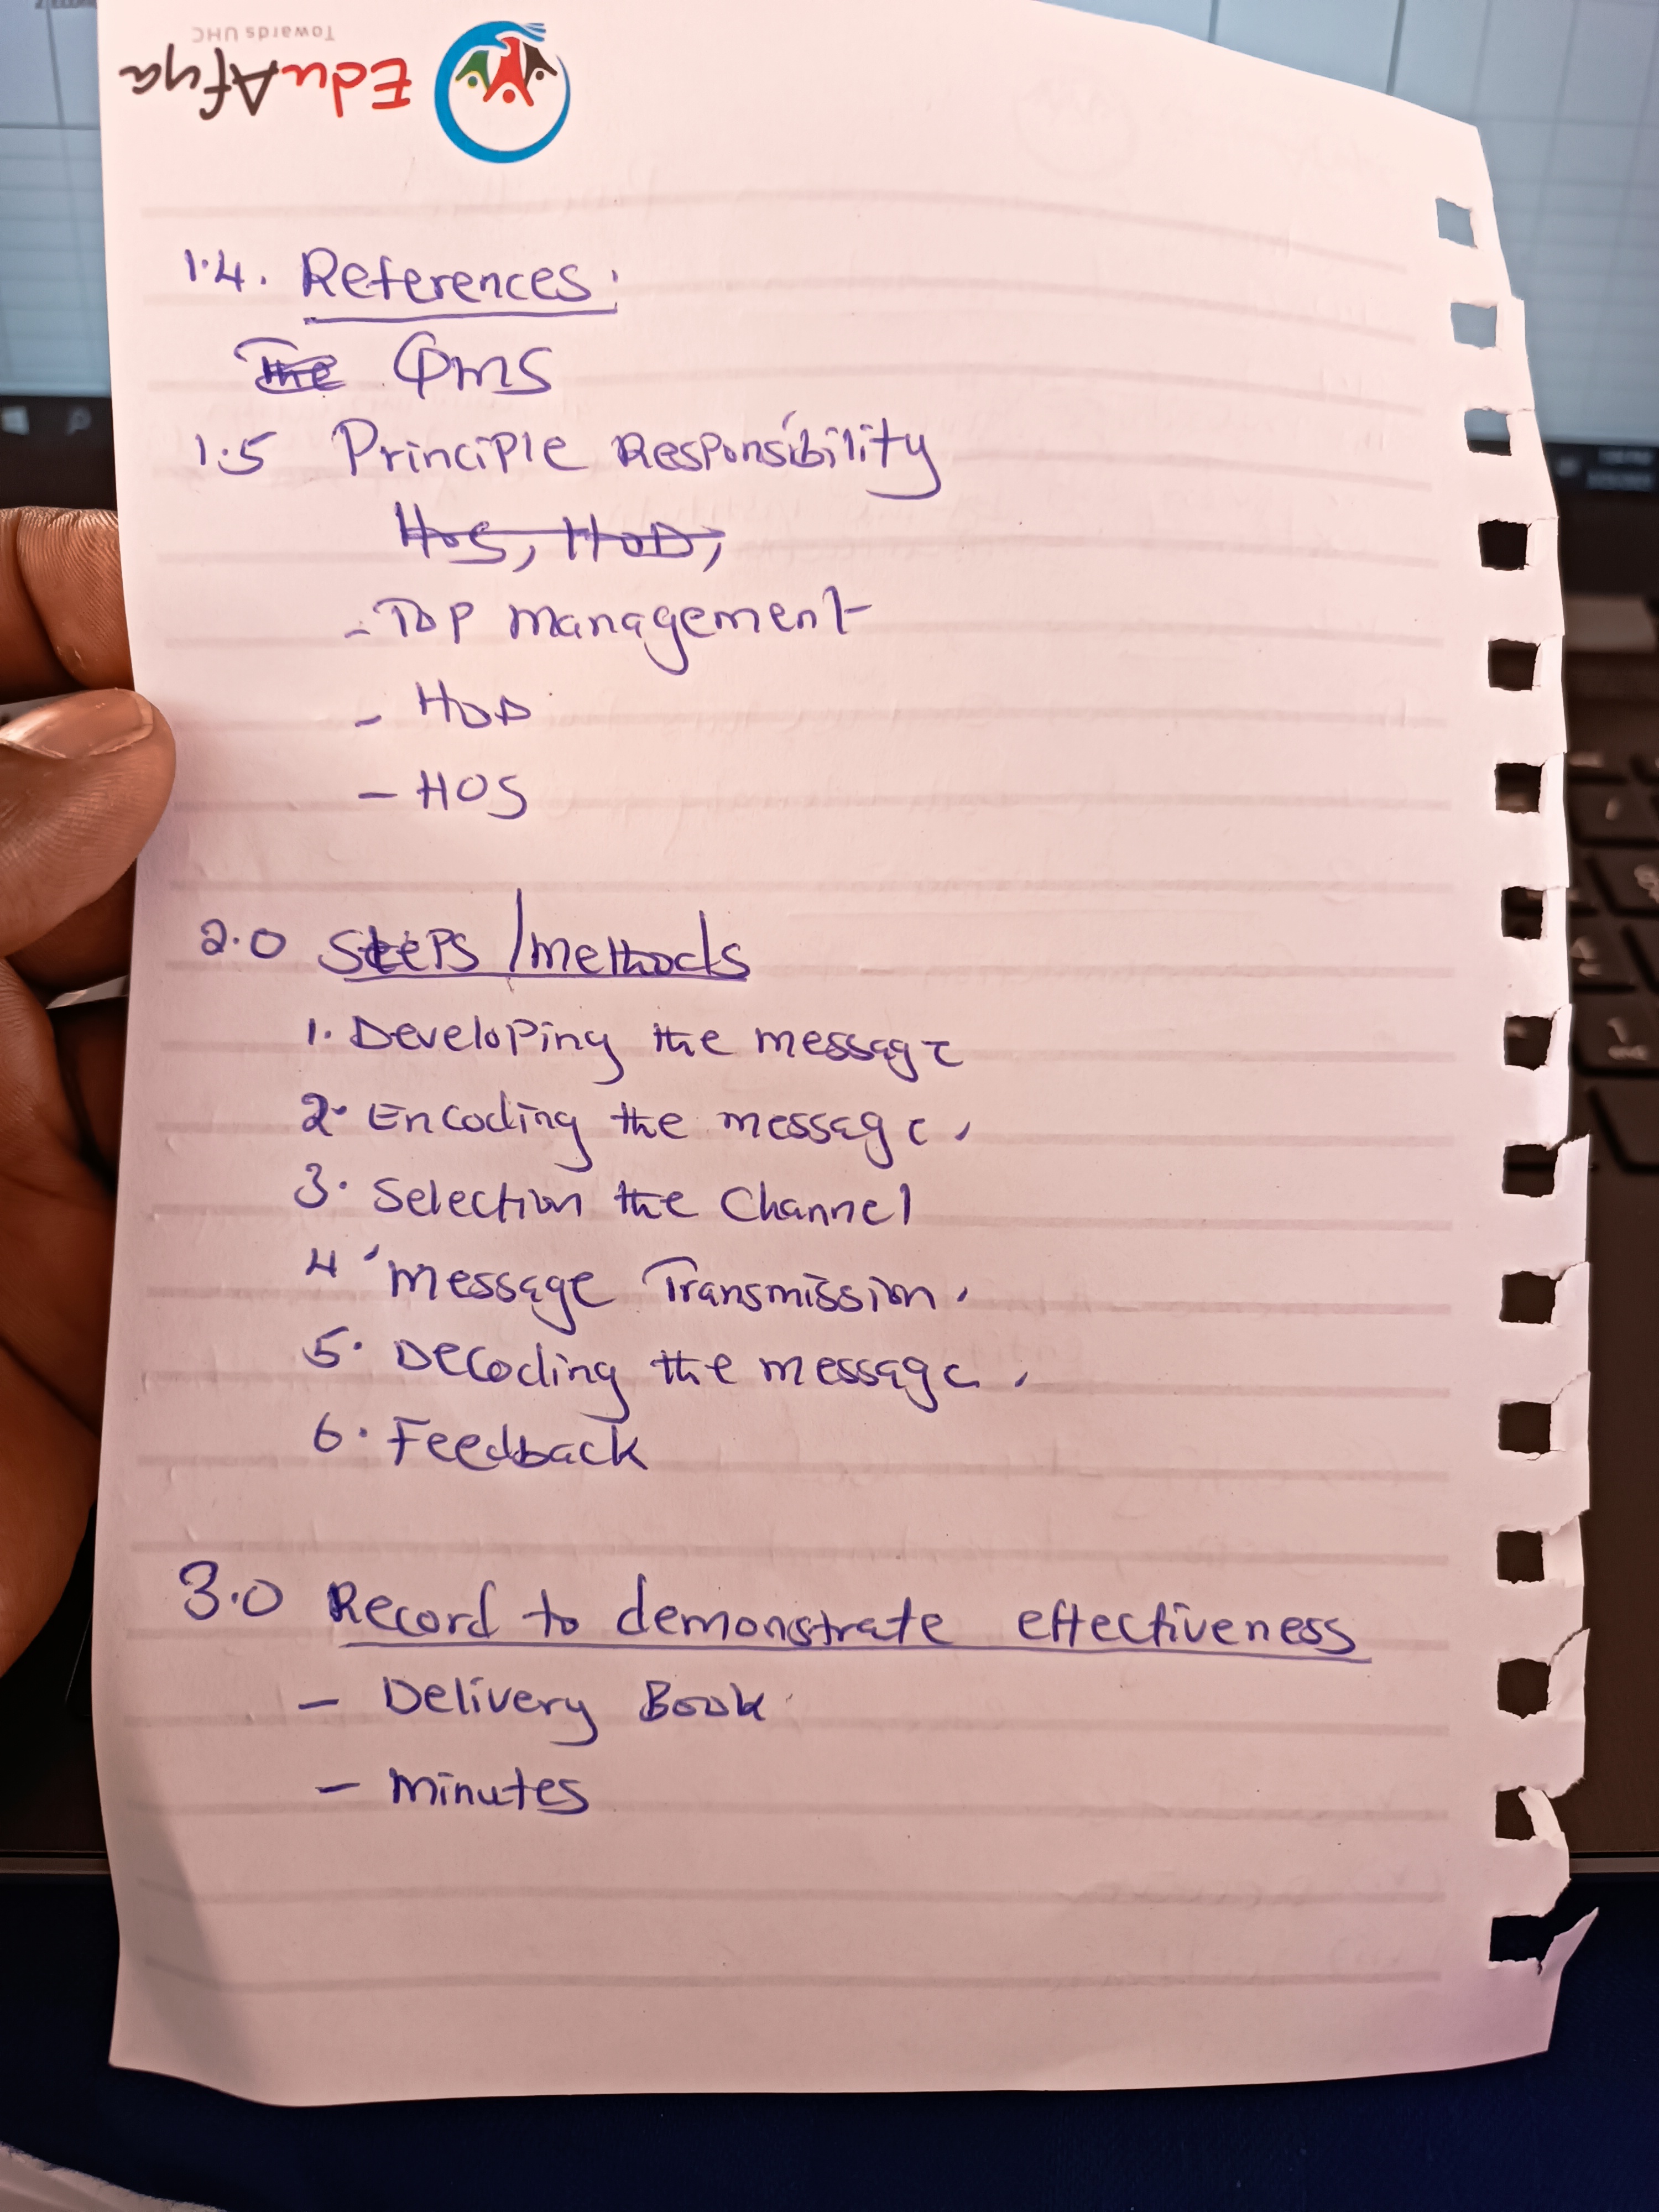 Towards UHC
EduAfya
1.4. References:
The QMS
1.5 Principle Responsibility
HOS, HOD,
- Top management
- HOD
- HOS
2.0 Steps/methods
1. Developing the message
2. Encoding the message.
3. Selection the Channel
4. Message Transmission.
5. Decoding the message.
6. Feedback
3.0 Record to demonstrate effectiveness
- Delivery Book
- Minutes